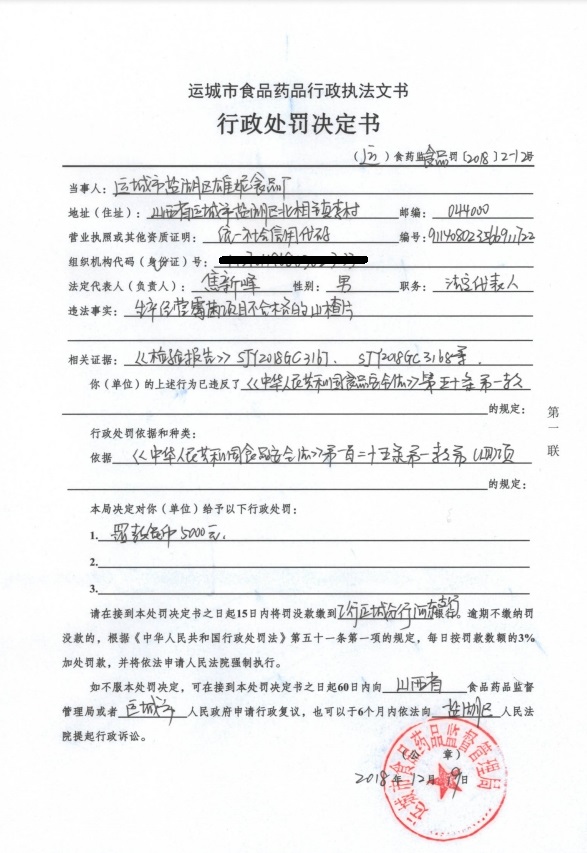 运城市食品药品行政执法文书
行政处罚决定书
（运）食药监食品罚〔2018〕2-12号
当事人：运城市盐湖区雄根食品厂
地址（住址）：山西省运城市盐湖区北相镇村 邮编：044000
营业执照或其他资质证明：统一社会信用代码 编号：
组织机构代码（身份证）号：
法定代表人（负责人）：焦新峰 性别：男 职务：法定代表人
违法事实：生产经营霉菌项目不合格的山楂片
相关证据：《检验报告》SJY2018GC3167、SJY2018GC3168等.
你（单位）的上述行为已违反了《中华人民共和国食品安全法》第五十条第一款
的规定：
行政处罚依据和种类：
依据《中华人民共和国食品安全法》第一百二十五条第一款第（四）项
的规定：
本局决定对你（单位）给予以下行政处罚：
1. 罚款人民币5000元.
2.
3.
请在接到本处罚决定书之日起15日内将罚没款缴到工行运城分行河东支行银行。逾期不缴纳罚
没款的，根据《中华人民共和国行政处罚法》第五十一条第一项的规定，每日按罚款数额的3%
加处罚款，并将依法申请人民法院强制执行。
如不服本处罚决定，可在接到本处罚决定书之日起60日内向 山西省 食品药品监督
管理局或者 运城市 人民政府申请行政复议，也可以于6个月内依法向 盐湖区 人民法
院提起行政诉讼。
（公 章）
2018年12月19日
运城市食品药品监督管理局
第一联